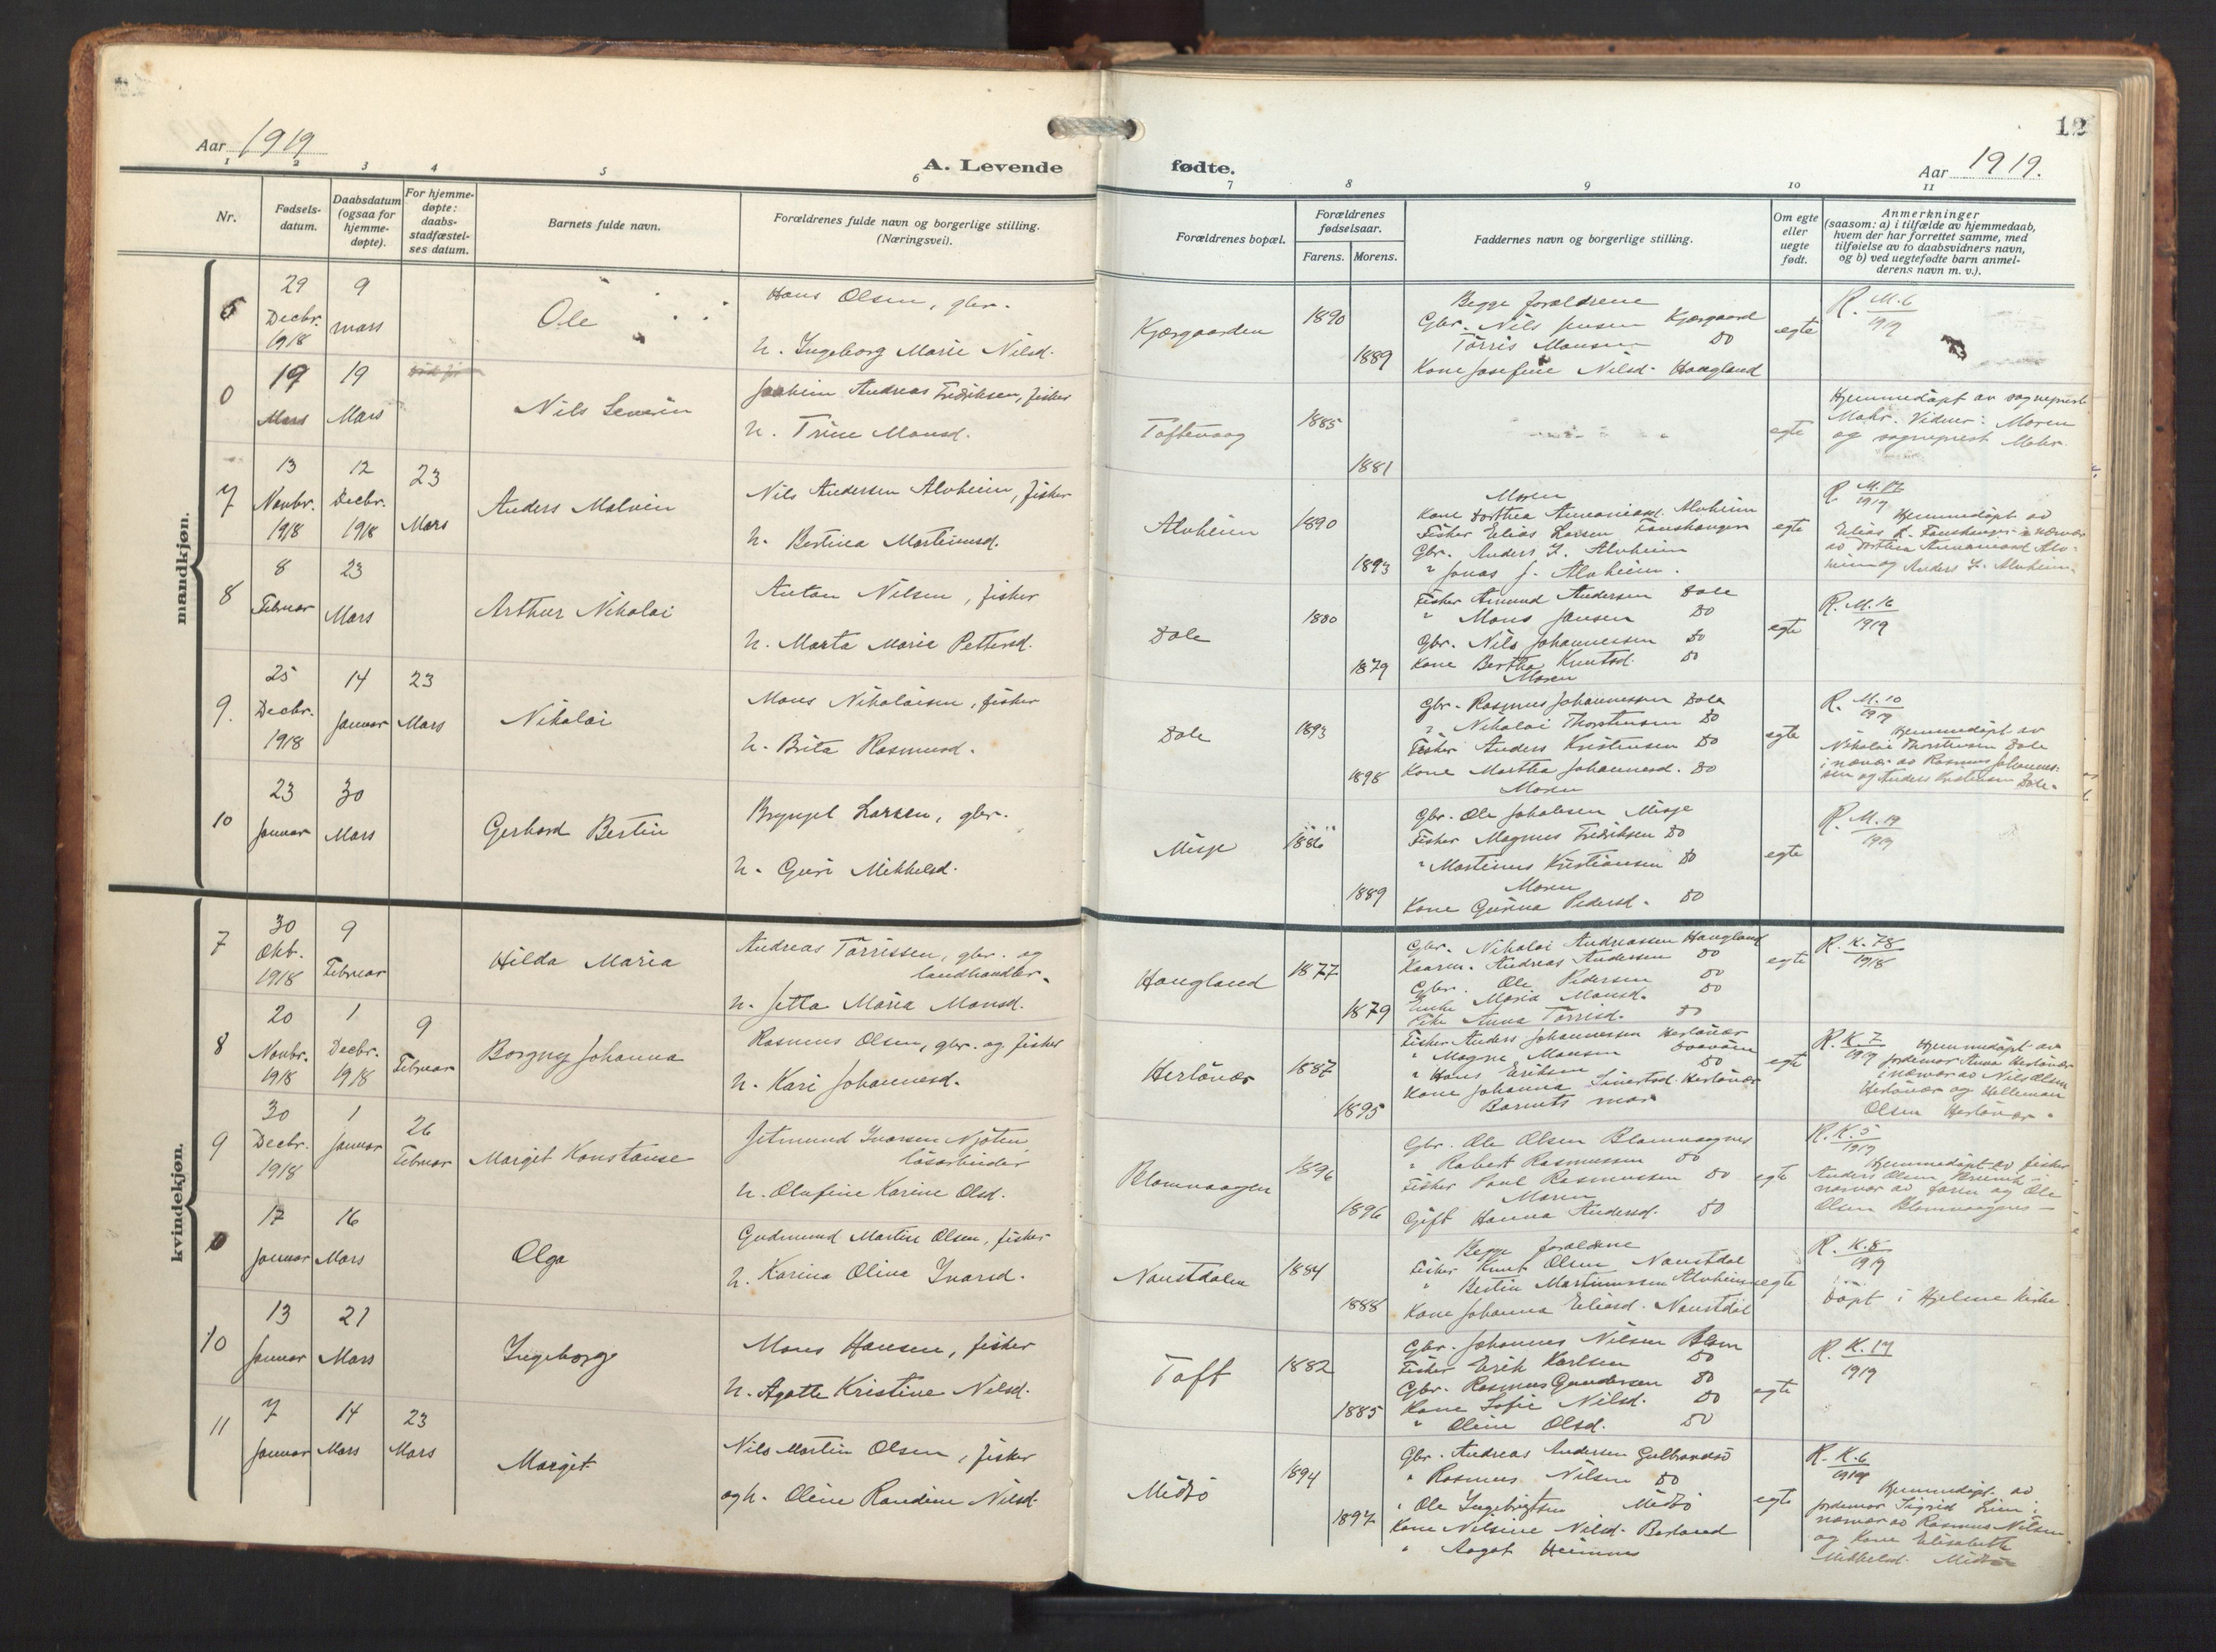 Aar 1919
A. Levende
fødte.
Aar 1919.
12
1 2 3 4 5 6 7 8 9 10 11
Nr.
Fødsels-
datum.
Daabsdatum
(ogsaa for
hjemme-
døpte).
For hjemme-
døpte:
daabs-
stadfæstel-
ses datum.
Barnets fulde navn.
Forældrenes fulde navn og borgerlige stilling.
(Næringsvei).
Forældrenes bopæl.
Forældrenes
fødselsaar.
Farens. Morens.
Faddernes navn og borgerlige stilling.
Om egte
eller
uegte
født.
Anmerkninger
(saasom: a) i tilfælde av hjemmedaab,
hvem der har forrettet samme, med
tilføielse av to daabsvidners navn,
og b) ved uegtefødte barn anmel-
derens navn m. v.).
mandkjøn.
29 Decbr. 1918
9 mars
Ole
Hans Olsen, gbr.
h. Ingeborg Marie Nilsd.
Kjærgaarden
1890
1889
Begge forældrene
Gbr. Nils Jensen Kjærgaard
Torris Monsen Do
Kone Josefine Nilsd. Haugland
egte
R. M. 6
1919
0
19 Mars
19 Mars
Nils Severin
Joakim Andreas Fredriksen, fisker
h. Trine Monsd.
Toftevaag
1885
1881
egte
Hjemmedøpt av sogneprest
Mohr. Vidner: Moren
og sogneprest Mohr.
7
13 Novbr. 1918
12 Decbr. 1918
23 Mars
Anders Malvin
Nils Andersen Alvheim, fisker
h. Bertina Martinusd.
Alvheim
1890
1893
Moren
Kone Dorthea Annaniasd. Alvheim
Fisker Elias Larsen
Gbr. Anders I. Alvheim
" Jonas J. Alvheim.
egte
R. M. 17
1919
Hjemmedøpt av
Elias L.
av Dorthea Annaniasd Alv-
heim og Anders I. Alvheim.
8
8 Februar
23 Mars
Arthur Nikolai
Anton Nilsen, fisker
h. Marta Marie Pettersd.
Dale
1880
1879
Fisker Amund Andersen Dale
" Mons Jansen Do
Gbr. Nils Johannessen Do
Kone Bertha Knutsd. Do
Moren
egte
R. M. 16
1919
9.
25 Decbr. 1918
14 Januar
23 Mars
Nikolai
Mons Nikolaisen, fisker
h. Brita Rasmusd.
Dale
1893
1898
Gbr. Rasmus Johannessen Dale
" Nikolai Thorstensen Do
Fisker Anders Kristensen Do
Kone Martha Johannesd. Do
Moren
egte
R. M. 10
1919
Hjemmedøpt av
Nikolai Thorstensen Dale
i nærvær av Rasmus Johannes-
sen og Anders Kristensen Dale.
10
23 Januar
30 Mars
Gerhard Bertin
Brynjel Larsen, gbr.
h. Guri Mikkelsd.
Misje
1886
1889
Gbr. Ole Jakobsen Misje
Fisker Magnus Fredriksen Do
" Martinus Kristiansen Do
Moren
Kone Gurina Pedersd. Do
egte
R. M. 19
1919
kvindekjøn.
7
30 Okt. 1918
9 Februar
Hilda Maria
Andreas Tørrissen, gbr. og
landhandler.
h. Jetta Maria Monsd.
Haugland
1877
1879
Gbr. Nikolai Andreassen Haugland
Kaarm. Andreas Andersen Do
Gbr. Ole Pedersen Do
Enke Maria Monsd. Do
Pike Anna Tørrisd. Do
egte
R. K. 78
1918
8
20 Novbr. 1918
1 Decbr. 1918
9 Februar
Borgny Johanna
Rasmus Olsen, gbr. og fisker
h. Kari Johannesd.
Herløvær
1887
1895
Fisker Anders Johannessen Herløvær
" Magne Monsen
" Hans Eriksen Do
Kone Johanna Sivertsd. Herløvær
Barnets mor
egte
R. K. 7
1919
Hjemmedøpt av
jordemor Anna Herløvær
i nærvær av Nils Olsen
Herløvær og Helleman
Olsen Herløvær.
9
30 Decbr. 1918
1 Januar
26 Februar
Margit Konstanse
Jetmund Ivarsen Njøten
løsarbeider
h. Olufine Karine Olsd.
Blomvaagen
1896
1896
Gbr. Ole Olsen Blomvaagnes
" Robert Rasmussen Do
Fisker Paul Rasmussen Do
Moren
Gift Hanna Andersd. Do
egte
R. K. 5
1919
Hjemmedøpt av fisker
Anders Olsen
nærvær av faren og Ole
Olsen Blomvaagnes
17 Januar
16 Mars
Olga
Gudmund Martin Olsen, fisker
h. Karina Olina Ivarsd.
Naustdalen
1884
1888
Begge forældrene
Fisker Knut Olsen Naustdal
" Bertin Martinussen Alvheim
Kone Johanna Eliasd. Naustdal
egte
R. K. 8
1919
Døpt i Hjelme kirke
10
13 Januar
21 Mars
Ingeborg
Mons Hansen, fisker
h. Agatte Kristine Nilsd.
Toft
1882
1885
Gbr. Johannes Nilsen Blom
Fisker Erik Karlsen Do
Gbr. Rasmus Gundersen Do
Kone Sofie Nilsd. Do
" Oline Olsd. Do
egte
R. K. 17
1919
11
7 Januar
14 Mars
23 Mars
Margit
Nils Martin Olsen, fisker
og h. Oline Randine Nilsd.
Midtø
1894
1897
Gbr. Andreas Andersen Gulbrandsø
" Rasmus Nilsen Do
" Ole Ingebrigtsen Midtø
Kone Nilsine Nilsd.
" Aagot
egte
R. K. 6
1919
Hjemmedøpt av
jordemor Sigrid Lien i
nærvær av Rasmus Nilsen
og Kone Elisabeth
Mikkelsd. Midtø